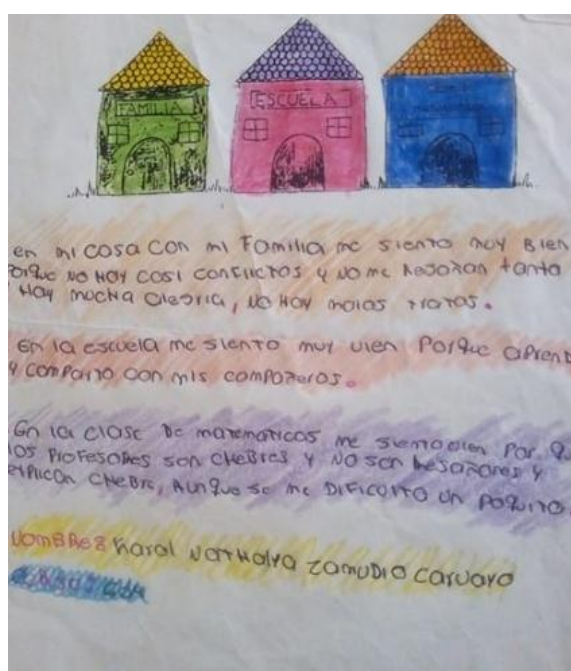 FAMILIA
ESCUELA
en mi casa con mi Familia me siento muy Bien
Porque NO HAY casi conflictos y NO me Regañan tanto
HAY mucha alegria, NO HAY malos tratos.
En la escuela me siento muy vien Porque aprend
y comparto con mis compañeros.
En la clase De matematicas me siento bien Por qu
los Profesores son cHeBres y NO son Regañones y
explican cHeBre, AunQue se me DificulTa un poquito.
NOMBRE: Karol NatHalya zamuDio